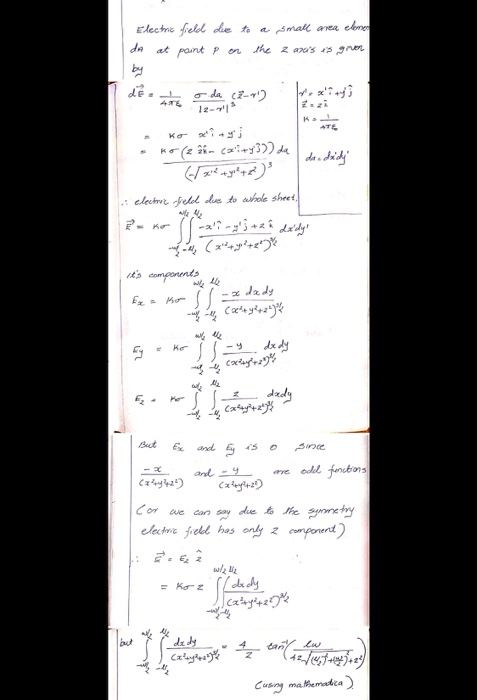 Electric field due to a small area element
dA at point P on the z axis is given
by
dE⃗ = 1/4πε₀ σ da (z⃗ - r') / |z - r'|³
r' = x'î + y'ĵ
z⃗ = zk̂
K = 1/4πε₀
da = dx'dy'
= Kσ x'î + y'ĵ
= Kσ (z k̂ - (x'î + y'ĵ)) da / (√x'² + y'² + z²)³
∴ electric field due to whole sheet,
E⃗ = Kσ ∫_{-w/2}^{w/2} ∫_{-l/2}^{l/2} -x'î - y'ĵ + z k̂ / (x'² + y'² + z²)^{3/2} dx'dy'
it's components
Ex = Kσ ∫_{-w/2}^{w/2} ∫_{-l/2}^{l/2} -x dx dy / (x² + y² + z²)^{3/2}
Ey = Kσ ∫_{-w/2}^{w/2} ∫_{-l/2}^{l/2} -y / (x² + y² + z²)^{3/2} dx dy
Ez = Kσ ∫_{-w/2}^{w/2} ∫_{-l/2}^{l/2} z / (x² + y² + z²)^{3/2} dx dy
But Ex and Ey is 0 since
-x / (x² + y² + z²) and -y / (x² + y² + z²) are odd functions
(or we can say due to the symmetry
electric field has only z component)
∴ E⃗ = Ez ẑ
= Kσ z ∫_{-w/2}^{w/2} ∫_{-l/2}^{l/2} dx dy / (x² + y² + z²)^{3/2}
but ∫_{-w/2}^{w/2} ∫_{-l/2}^{l/2} dx dy / (x² + y² + z²)^{3/2} = 4/z tan⁻¹ (lw / 4z √(l/2)² + (w/2)² + z²)
(using mathematica)